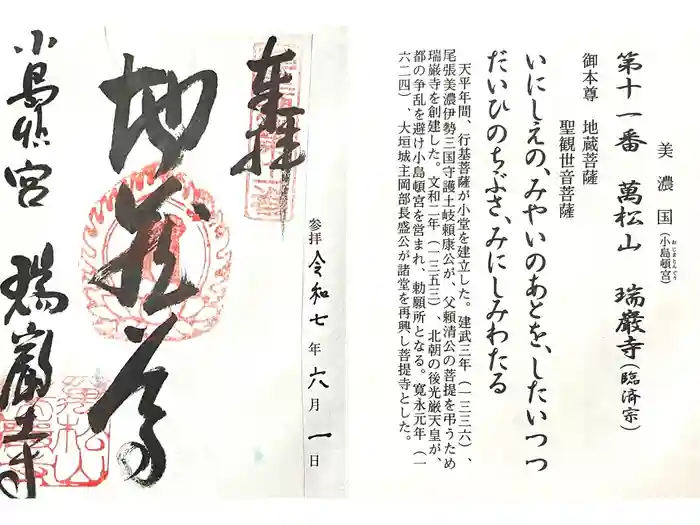 美濃国(小島頓宮)
おじまとんぐう
第十一番 萬松山 瑞巌寺(臨済宗)
御本尊 地蔵菩薩
聖観世音菩薩
いにしえの、みやいのあとを、したいつつ
だいひのちぶさ、みにしみわたる
天平年間、行基菩薩が小堂を建立した。建武三年(一三三六)、
尾張美濃伊勢三国守護土岐頼康公が、父頼清公の菩提を弔うため
瑞巌寺を創建した。文和二年(一三五三)、北朝の後光厳天皇が、
都の争乱を避け小島頓宮を営まれ、勅願所となる。寛永元年(一
六二四)、大垣城主岡部長盛公が諸堂を再興し菩提寺とした。
奉拝
参拝 令和七年六月一日
地蔵尊
小島頓宮 瑞巌寺
萬松山